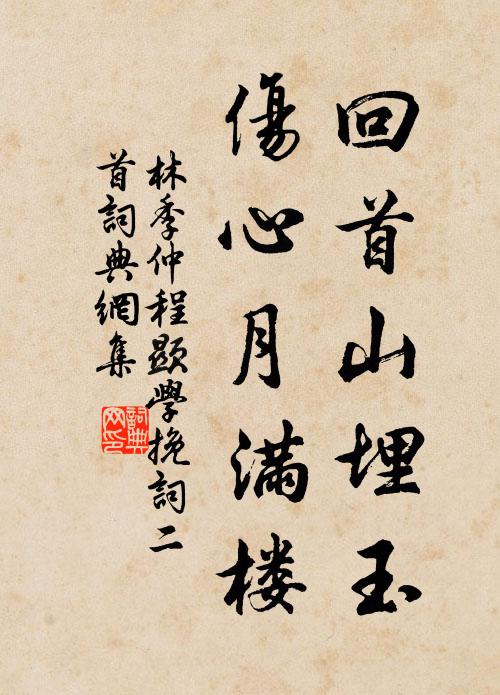 回首山埋玉
傷心月满楼
林季仲程顯學挽詞二
首詞典網集
詞典
网印